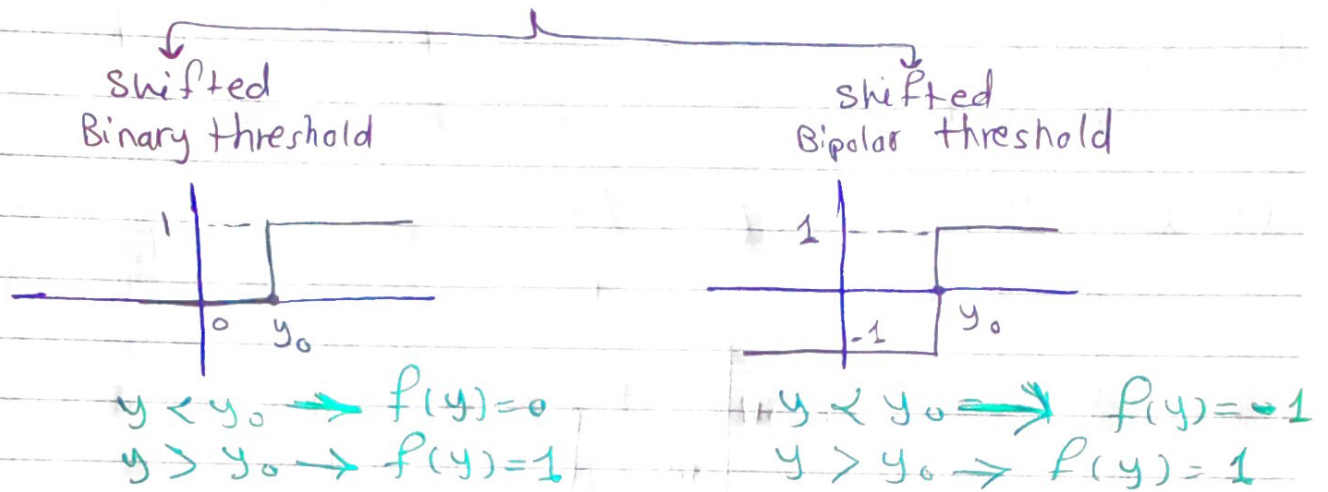 shifted
Binary threshold
1
0
y₀
y < y₀ → f(y)=0
y > y₀ → f(y)=1
shifted
Bipolar threshold
1
-1
y₀
y < y₀ ⇒ f(y)=-1
y > y₀ → f(y)=1